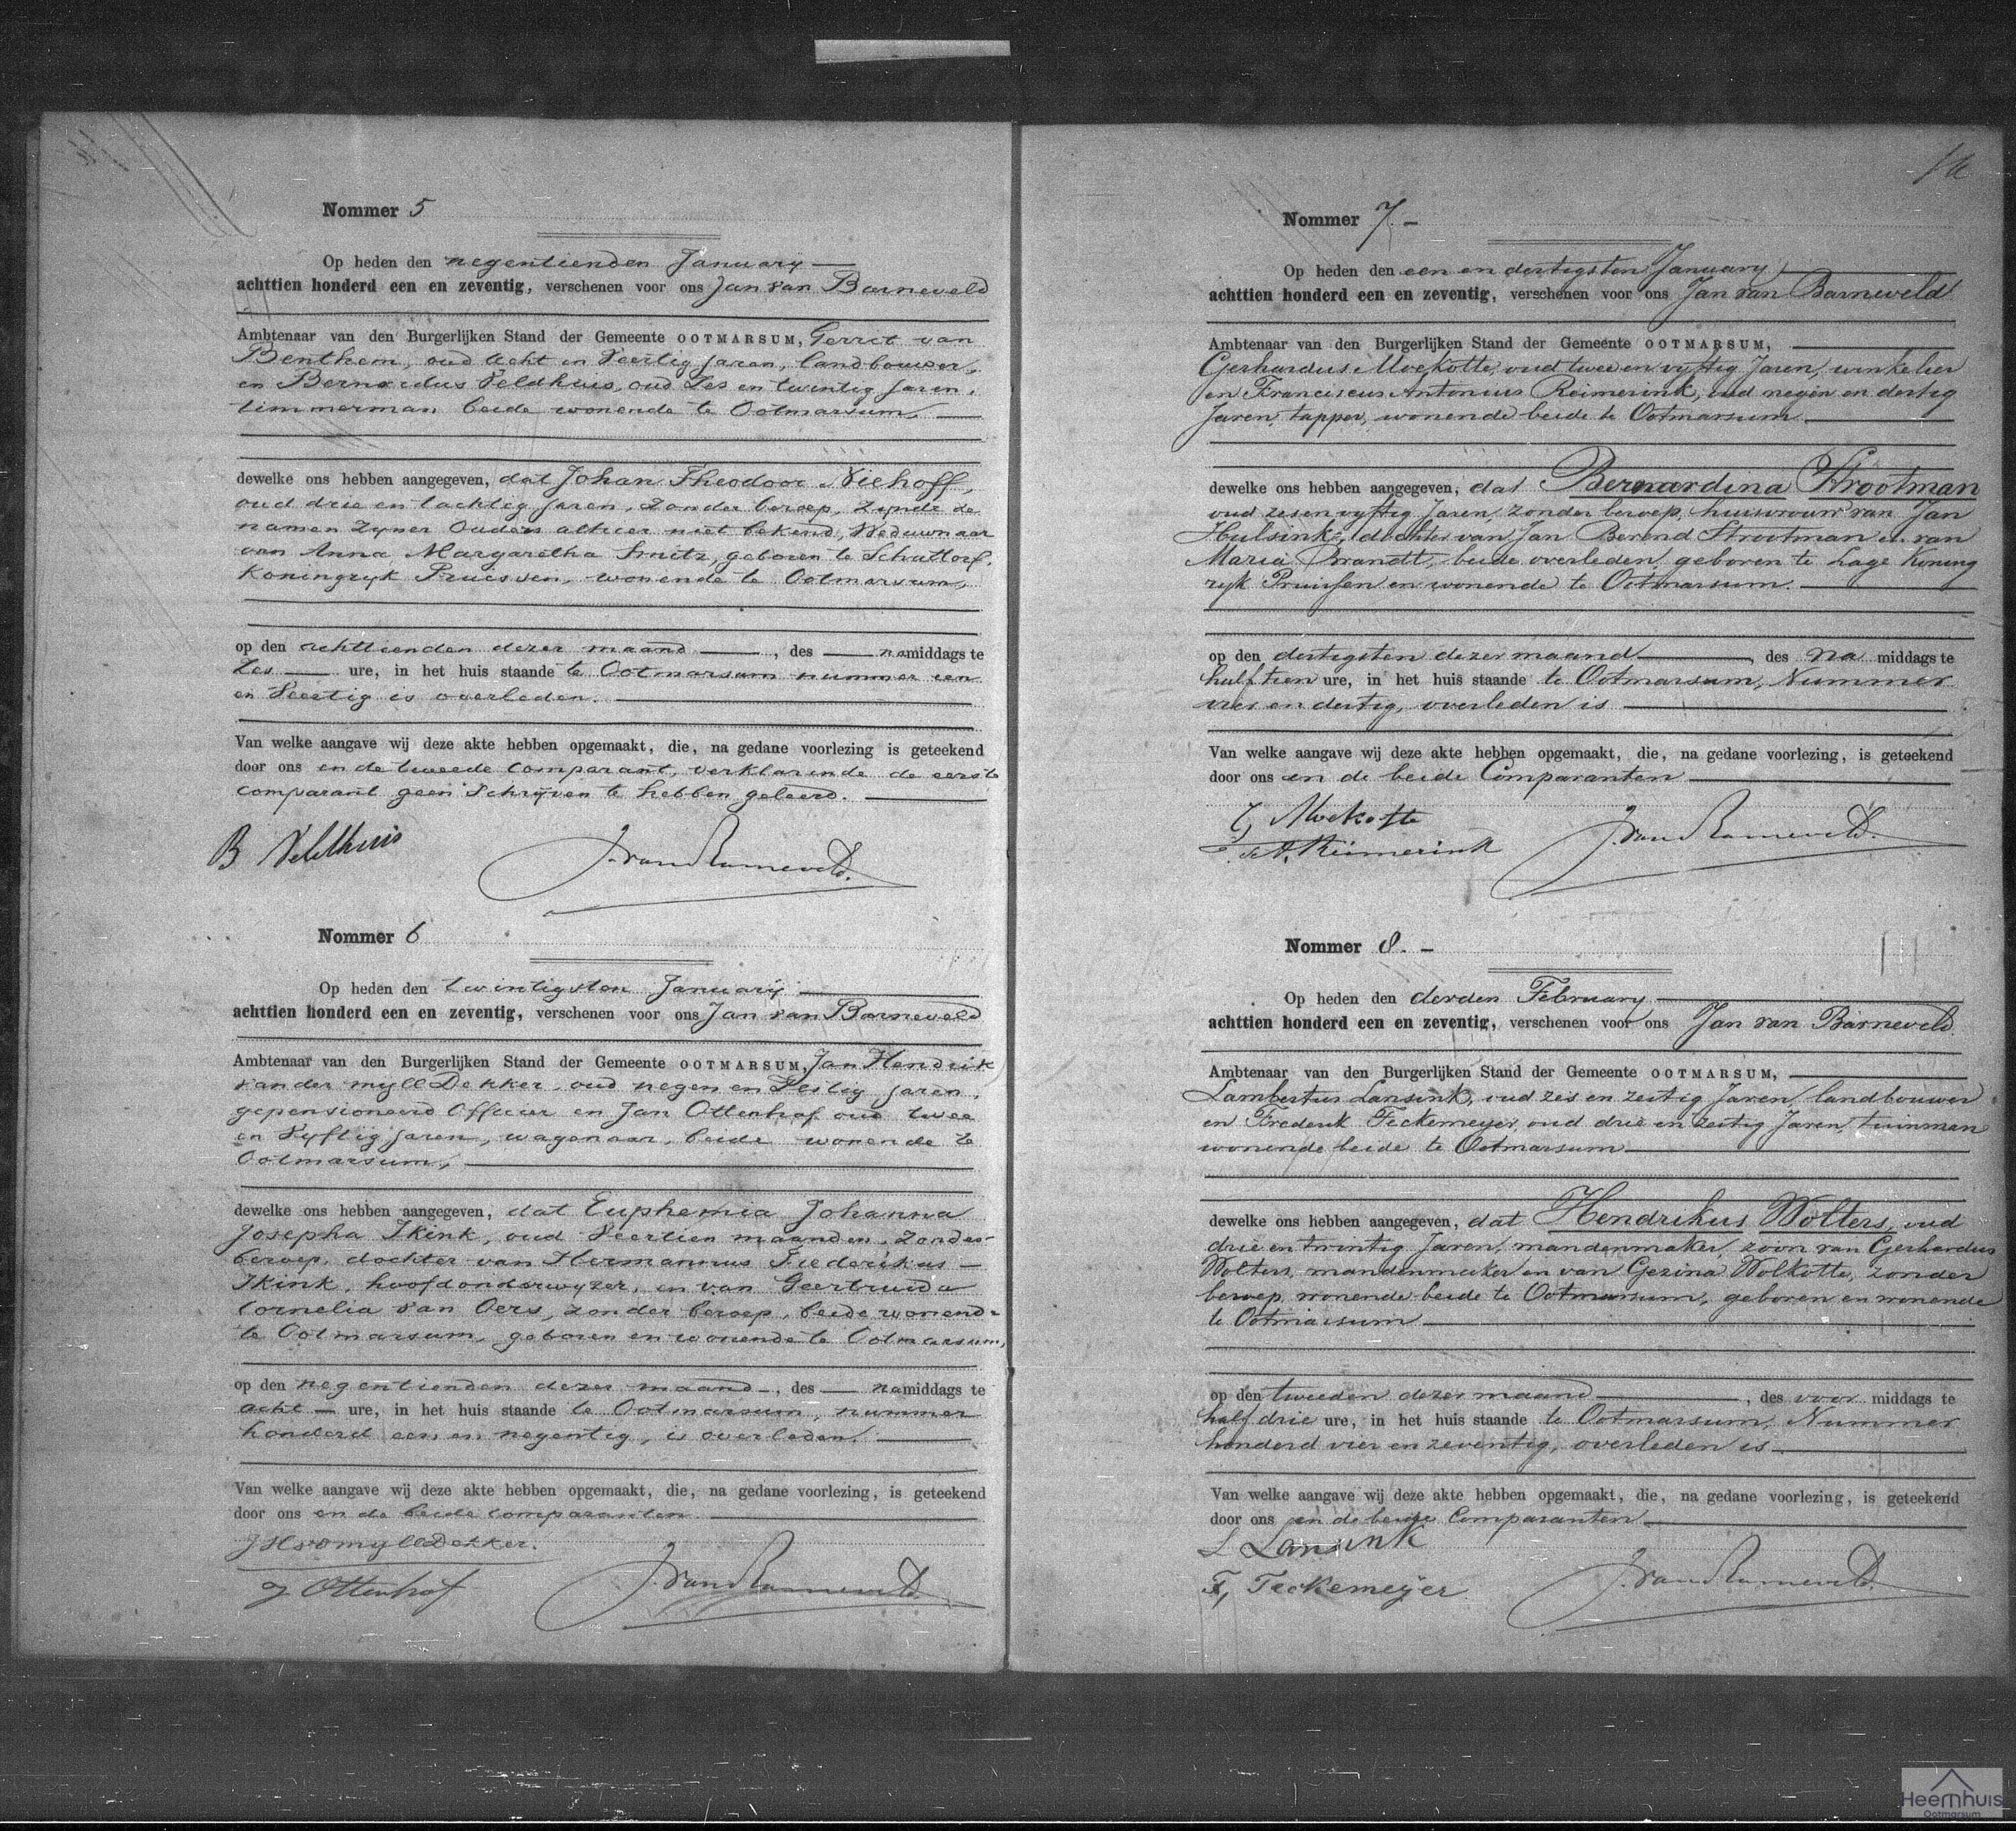 Nommer 5
Op heden den negentienden January
achttien honderd een en zeventig, verschenen voor ons Jan van Barneveld
Ambtenaar van den Burgerlijken Stand der Gemeente OOTMARSUM, Gerrit van
Benthem, oud acht en Veertig jaren, landbouwer,
en Bernardus Veldhuis, oud Zes en twintig jaren,
timmerman beide wonende te Ootmarsum,
dewelke ons hebben aangegeven, dat Johan Theodoor Niehoff,
oud drie en tachtig jaren, zonder beroep, zynde de
namen zyner Ouders alhier niet bekend, Weduwnaar
van Anna Margaretha Smitz, geboren te Schuttorf,
Koningryk Pruessen, wonende te Ootmarsum,
op den achttienden dezer maand, des namiddags te
Zes ure, in het huis staande te Ootmarsum nummer een
en Veertig is overleden.
Van welke aangave wij deze akte hebben opgemaakt, die, na gedane voorlezing is geteekend
door ons en de tweede Comparant, verklarende de eerste
comparant geen Schrijven te hebben geleerd.
B Veldhuis
J. van Barneveld.
Nommer 6
Op heden den twintigsten January
achttien honderd een en zeventig, verschenen voor ons Jan van Barneveld
Ambtenaar van den Burgerlijken Stand der Gemeente OOTMARSUM, Jan Hendrik
van der myll Dekker oud negen en Zestig jaren,
gepensioneerd Officier en Jan Ottenhof oud twee
en Vyftig jaren, wagenaar, beide wonende te
Ootmarsum,
dewelke ons hebben aangegeven, dat Euphemia Johanna
Josepha Ikink, oud Veertien maanden, zonder
beroep, dochter van Hermannus Frederikus
Ikink, hoofdonderwyzer, en van Geertruida
Cornelia van Oers, zonder beroep, beide wonende
te Ootmarsum, geboren en wonende te Ootmarsum,
op den negentienden dezer maand, des namiddags te
acht ure, in het huis staande te Ootmarsum, nummer
honderd een en negentig, is overleden.
Van welke aangave wij deze akte hebben opgemaakt, die, na gedane voorlezing, is geteekend
door ons en de beide comparanten.
JHvdmyllDekker.
J Ottenhof
J. van Barneveld.
Nommer 7.
Op heden den een en dertigsten January
achttien honderd een en zeventig, verschenen voor ons Jan van Barneveld
Ambtenaar van den Burgerlijken Stand der Gemeente OOTMARSUM,
Gerhardus Moekotte, oud twee en vyftig Jaren, winkelier
en Franciscus Antonius Reimerink, oud negen en dertig
Jaren, tapper, wonende beide te Ootmarsum.
dewelke ons hebben aangegeven, dat Bernardina Strootman
oud zes en vyftig Jaren, zonder beroep, huisvrouw van Jan
Hulsink, dochter van Jan Berend Strootman en van
Maria Brandt, beide overleden, geboren te Lage Koning
ryk Pruissen en wonende te Ootmarsum.
op den dertigsten dezer maand, des na middags te
half tien ure, in het huis staande te Ootmarsum, Nummer
vier en dertig, overleden is
Van welke aangave wij deze akte hebben opgemaakt, die, na gedane voorlezing, is geteekend
door ons en de beide Comparanten
G, Moekotte
F. A, Reimerink
J. van Barneveld.
Nommer 8.
Op heden den derden February
achttien honderd een en zeventig, verschenen voor ons Jan van Barneveld.
Ambtenaar van den Burgerlijken Stand der Gemeente OOTMARSUM,
Lambertus Lansink, oud zes en zestig Jaren, landbouwer
en Frederik Teckemeyer, oud drie en zestig Jaren, tuinman
wonende beide te Ootmarsum
dewelke ons hebben aangegeven, dat Hendrikus Wolters, oud
drie en twintig Jaren, mandenmaker, zoon van Gerhardus
Wolters, mandenmaker en van Gezina Wolkotte, zonder
beroep, wonende beide te Ootmarsum, geboren en wonende
te Ootmarsum
op den tweeden dezer maand, des voor middags te
half drie ure, in het huis staande te Ootmarsum, Nummer
honderd vier en zeventig, overleden is
Van welke aangave wij deze akte hebben opgemaakt, die, na gedane voorlezing, is geteekend
door ons en de beide Comparanten
L Lansink
F, Teckemeyer
J. van Barneveld.
Heemhuis
Ootmarsum